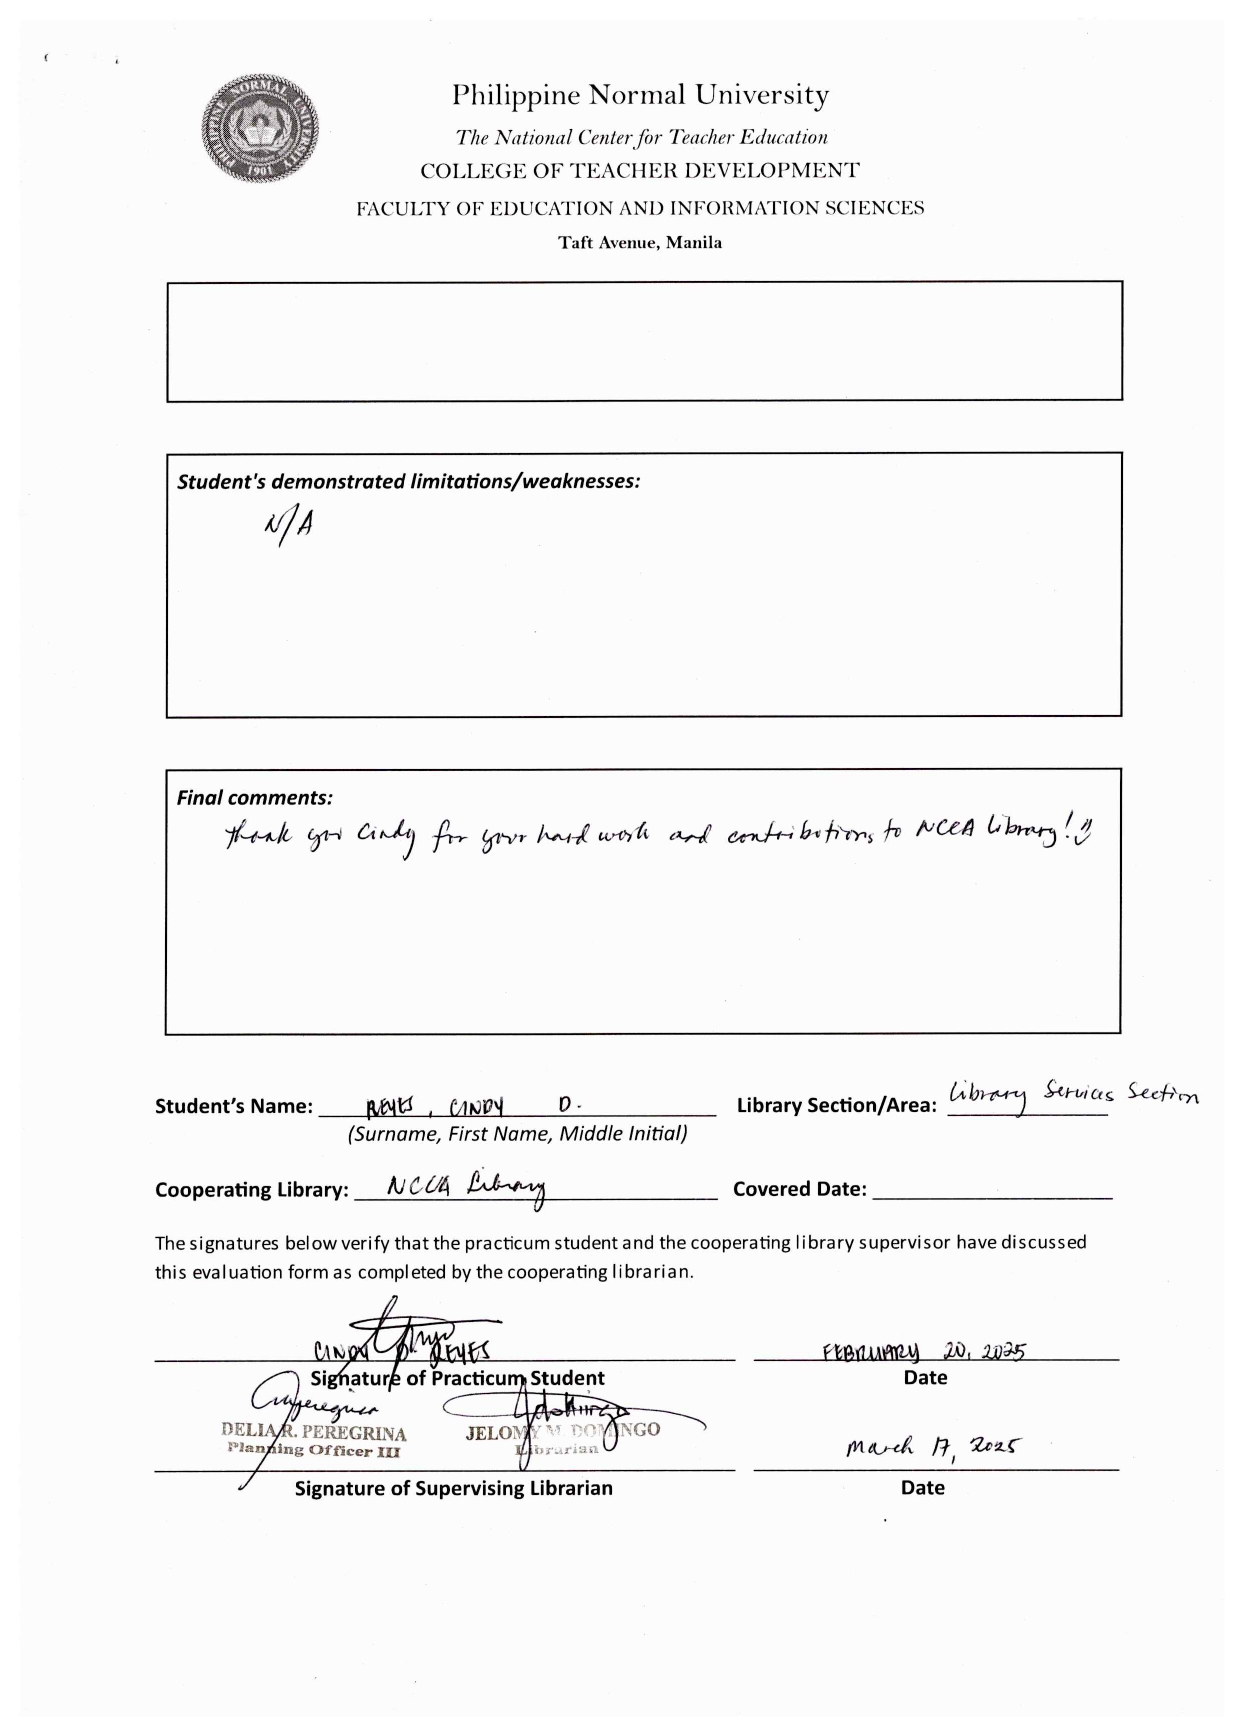 PHILIPPINE NORMAL UNIVERSITY
1901
Philippine Normal University
The National Center for Teacher Education
COLLEGE OF TEACHER DEVELOPMENT
FACULTY OF EDUCATION AND INFORMATION SCIENCES
Taft Avenue, Manila
Student's demonstrated limitations/weaknesses:
N/A
Final comments:
Thank you Cindy for your hard work and contributions to NCCA Library!
Student's Name: REYES, CINDY D. Library Section/Area: Library Services Section
(Surname, First Name, Middle Initial)
Cooperating Library: NCCA Library Covered Date:
The signatures below verify that the practicum student and the cooperating library supervisor have discussed
this evaluation form as completed by the cooperating librarian.
CINDY D. REYES FEBRUARY 20, 2025
Signature of Practicum Student Date
DELIA R. PEREGRINA JELOMY M. DOMINGO
Planning Officer III Librarian March 17, 2025
Signature of Supervising Librarian Date